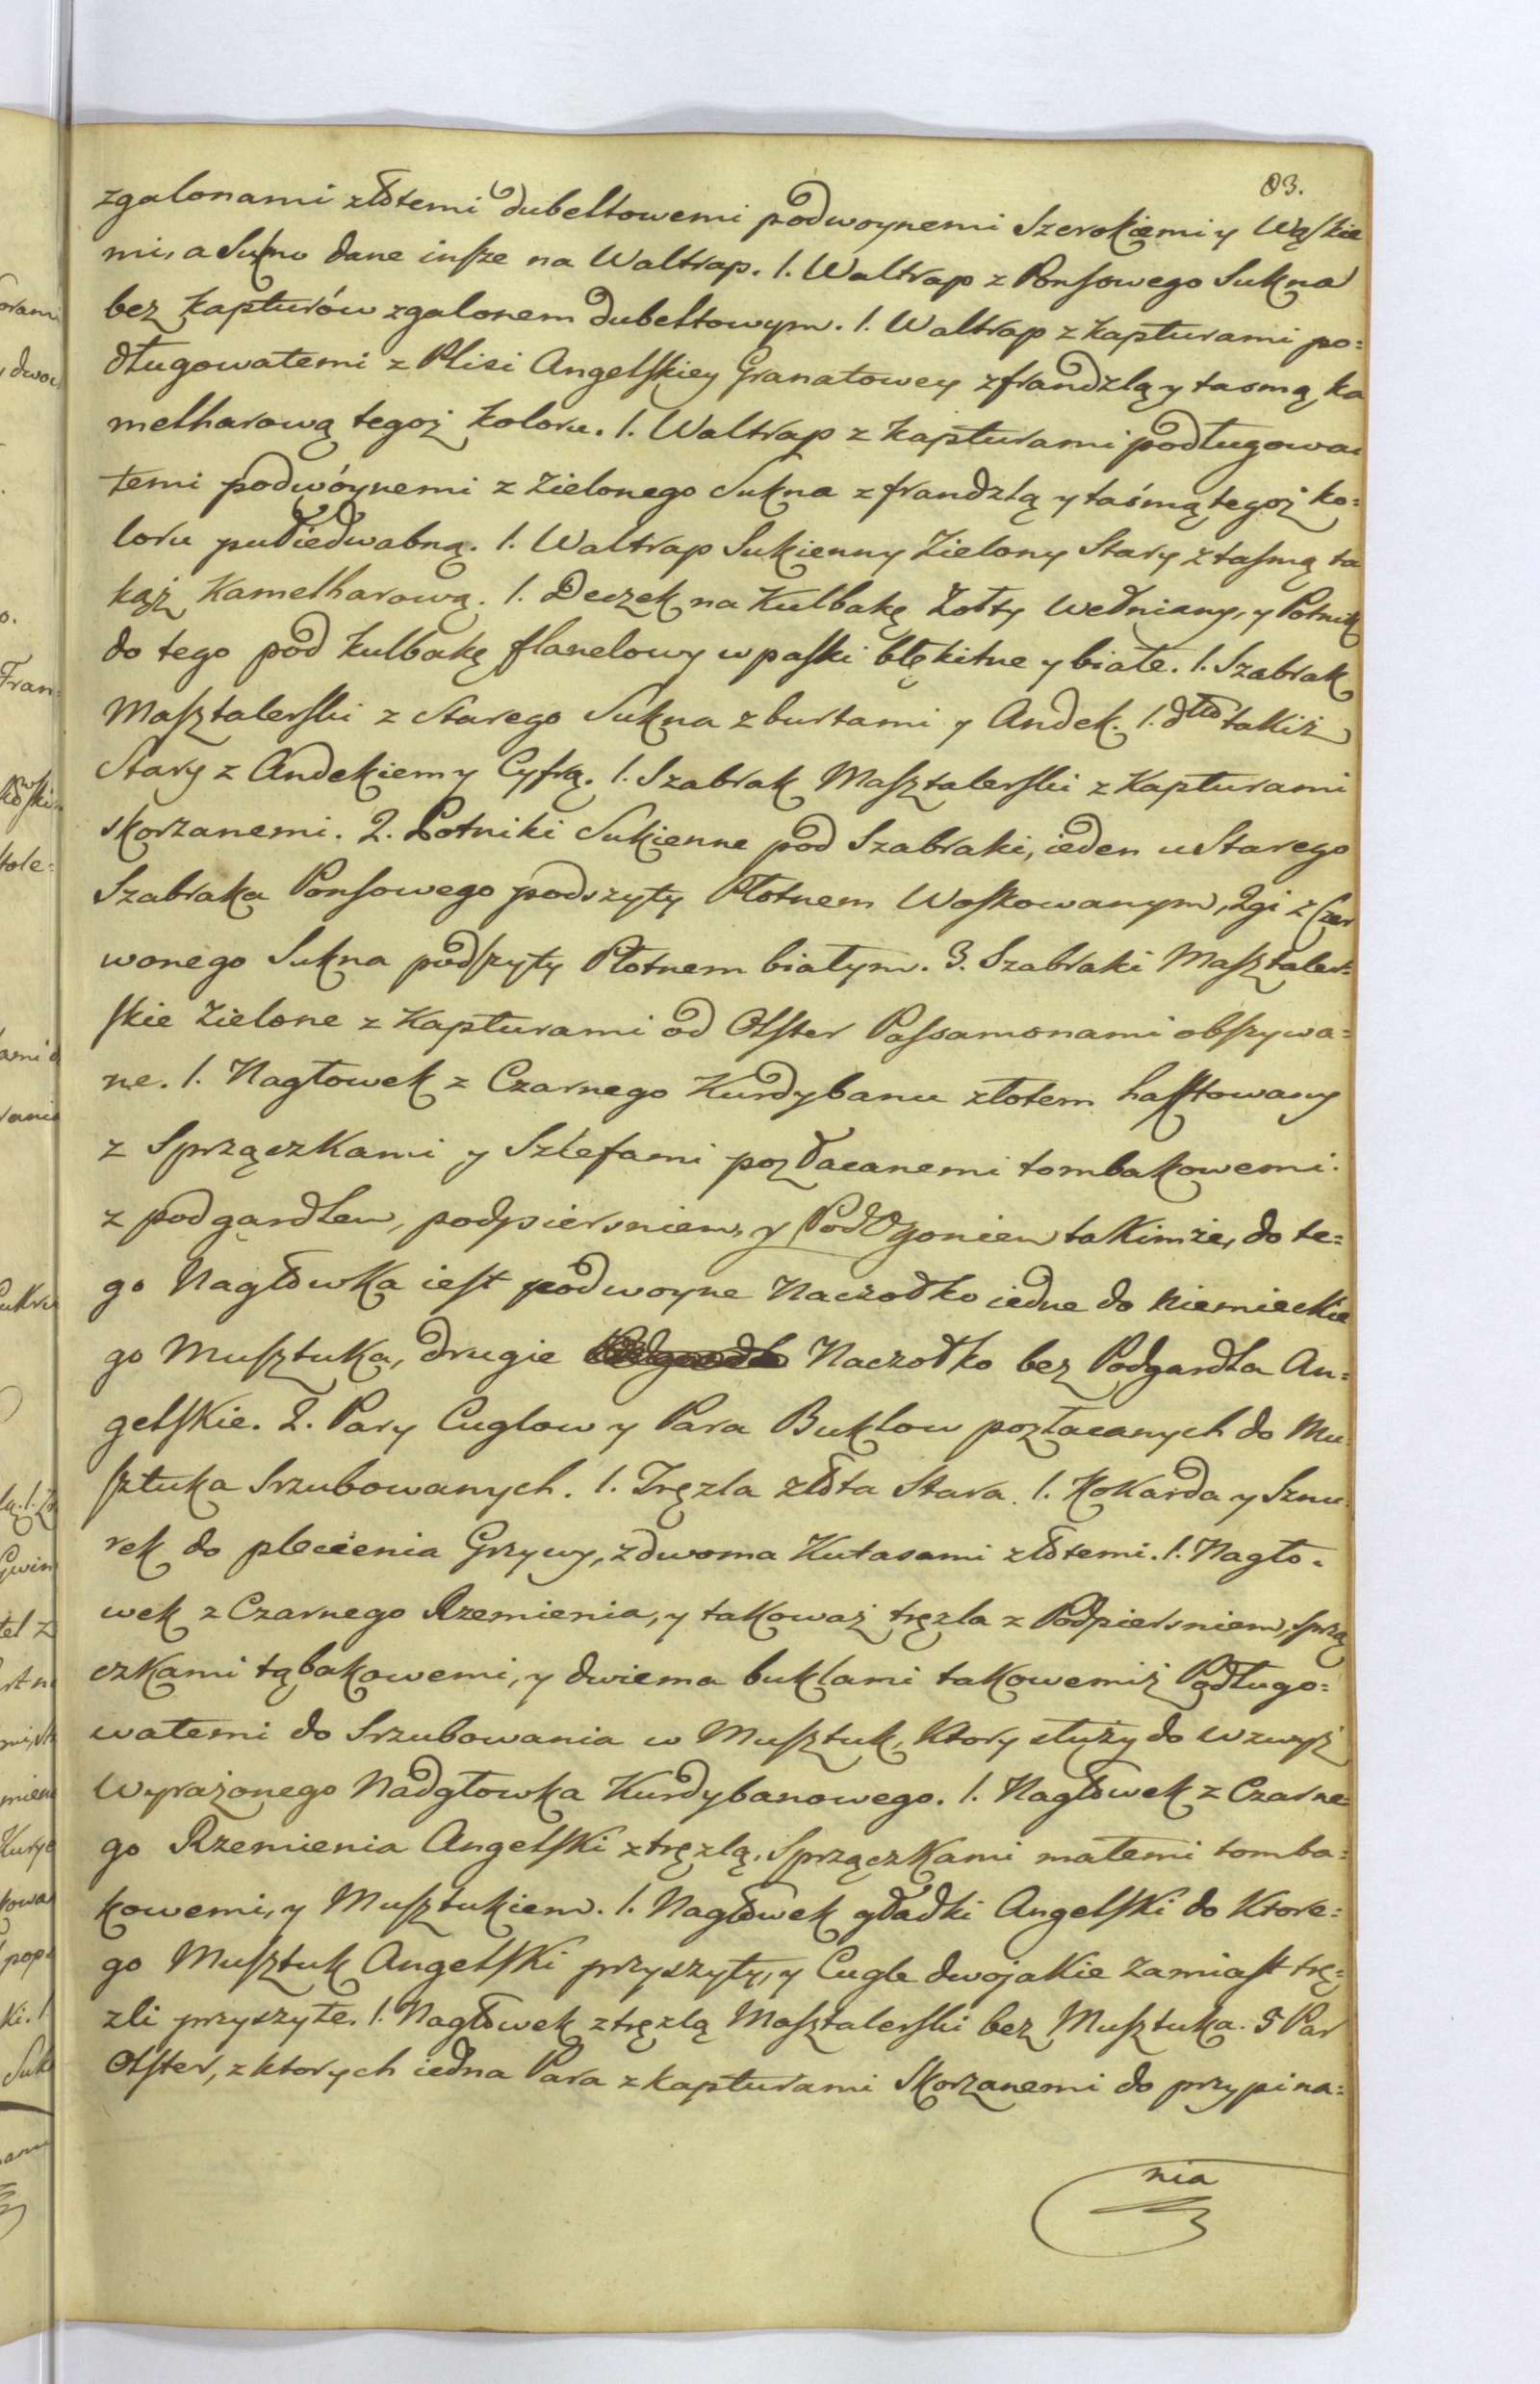 93.
zgalonami złotemi dubeltowemi podwoynemi Szerokiemi y Wąskie
mi, a Sukno dane insze na Waltrap. 1. Waltrap z Ponsowego Sukna
bez kapturów zgalonem dubeltowym. 1. Waltrap z kapturami po=
długowatemi z Plisi Angelskiey Granatowey zfrandzlą y tasmą ka
melharową tegoż koloru. 1. Waltrap z kapturami podługowa=
temi podwóynemi z Zielonego Sukna z frandzlą y taśmą tegoż ko=
loru pułiedwabną. 1. Waltrap Sukienny Zielony Stary z tasmą ta
kąż Kamelharową. 1. Deczek na Kulbakę Żołty wełniany, y Potnik
do tego pod kulbakę flanelowy w paski błękitne y białe. 1. Szabrak
Masztalerski z Starego Sukna z burtami y Andek. 1. dtto takiż
Stary z Andekiem y Cyfrą. 1. Szabrak Masztalerski z Kapturami
skorzanemi. 2. Potniki Sukienne pod Szabraki, ieden u Starego
Szabraka Ponsowego podszyty Płotnem Woskowanym, 2gi z Czer
wonego Sukna podszyty Płotnem białym. 3. Szabraki Masztaler=
skie Zielone z Kapturami od Olster Passamonami obszywa=
ne. 1. Nagłowek z Czarnego Kurdybanu złotem haftowany
z Sprzączkami y Szlefami pozłacanemi tombakowemi
z podgardłem, podpiersniem, y Podogoniem takimże, do te=
go Nagłowka iest podwoyne Naczołko iedne do Niemieckie
go Musztuka, drugie Naczołko bez Podgardła An=
gelskie. 2. Pary Cuglow y Para Buklow pozłacanych do Mu=
sztuka Srzubowanych. 1. Tręzla złota Stara. 1. Kokarda y Sznu
rek do plecienia Grzywy, z dwoma Kutasami złotemi. 1. Nagło=
wek z Czarnego Rzemienia, y takoważ tręzla z Podpiersniem, sprzą
czkami tąbakowemi, y dwiema buklami takowemiż Podługo=
watemi do Srzubowania w Musztuk, Ktory służy do wzwyż
Wyrażonego Nadgłowka Kurdybanowego. 1. Nagłowek z Czarne=
go Rzemienia Angelski z tręzlą, Sprzączkami małemi tomba=
kowemi, y Musztukiem. 1. Nagłówek gładki Angelski do Ktore=
go Musztuk Angelski przyszyty, y Cugle dwojakie zamiast trę=
zli przyszyte. 1. Nagłowek z tręzlą Masztalerski bez Musztuka. 5 Par
Olster, z ktorych iedna Para z kapturami Skorzanemi do przypina=
nia